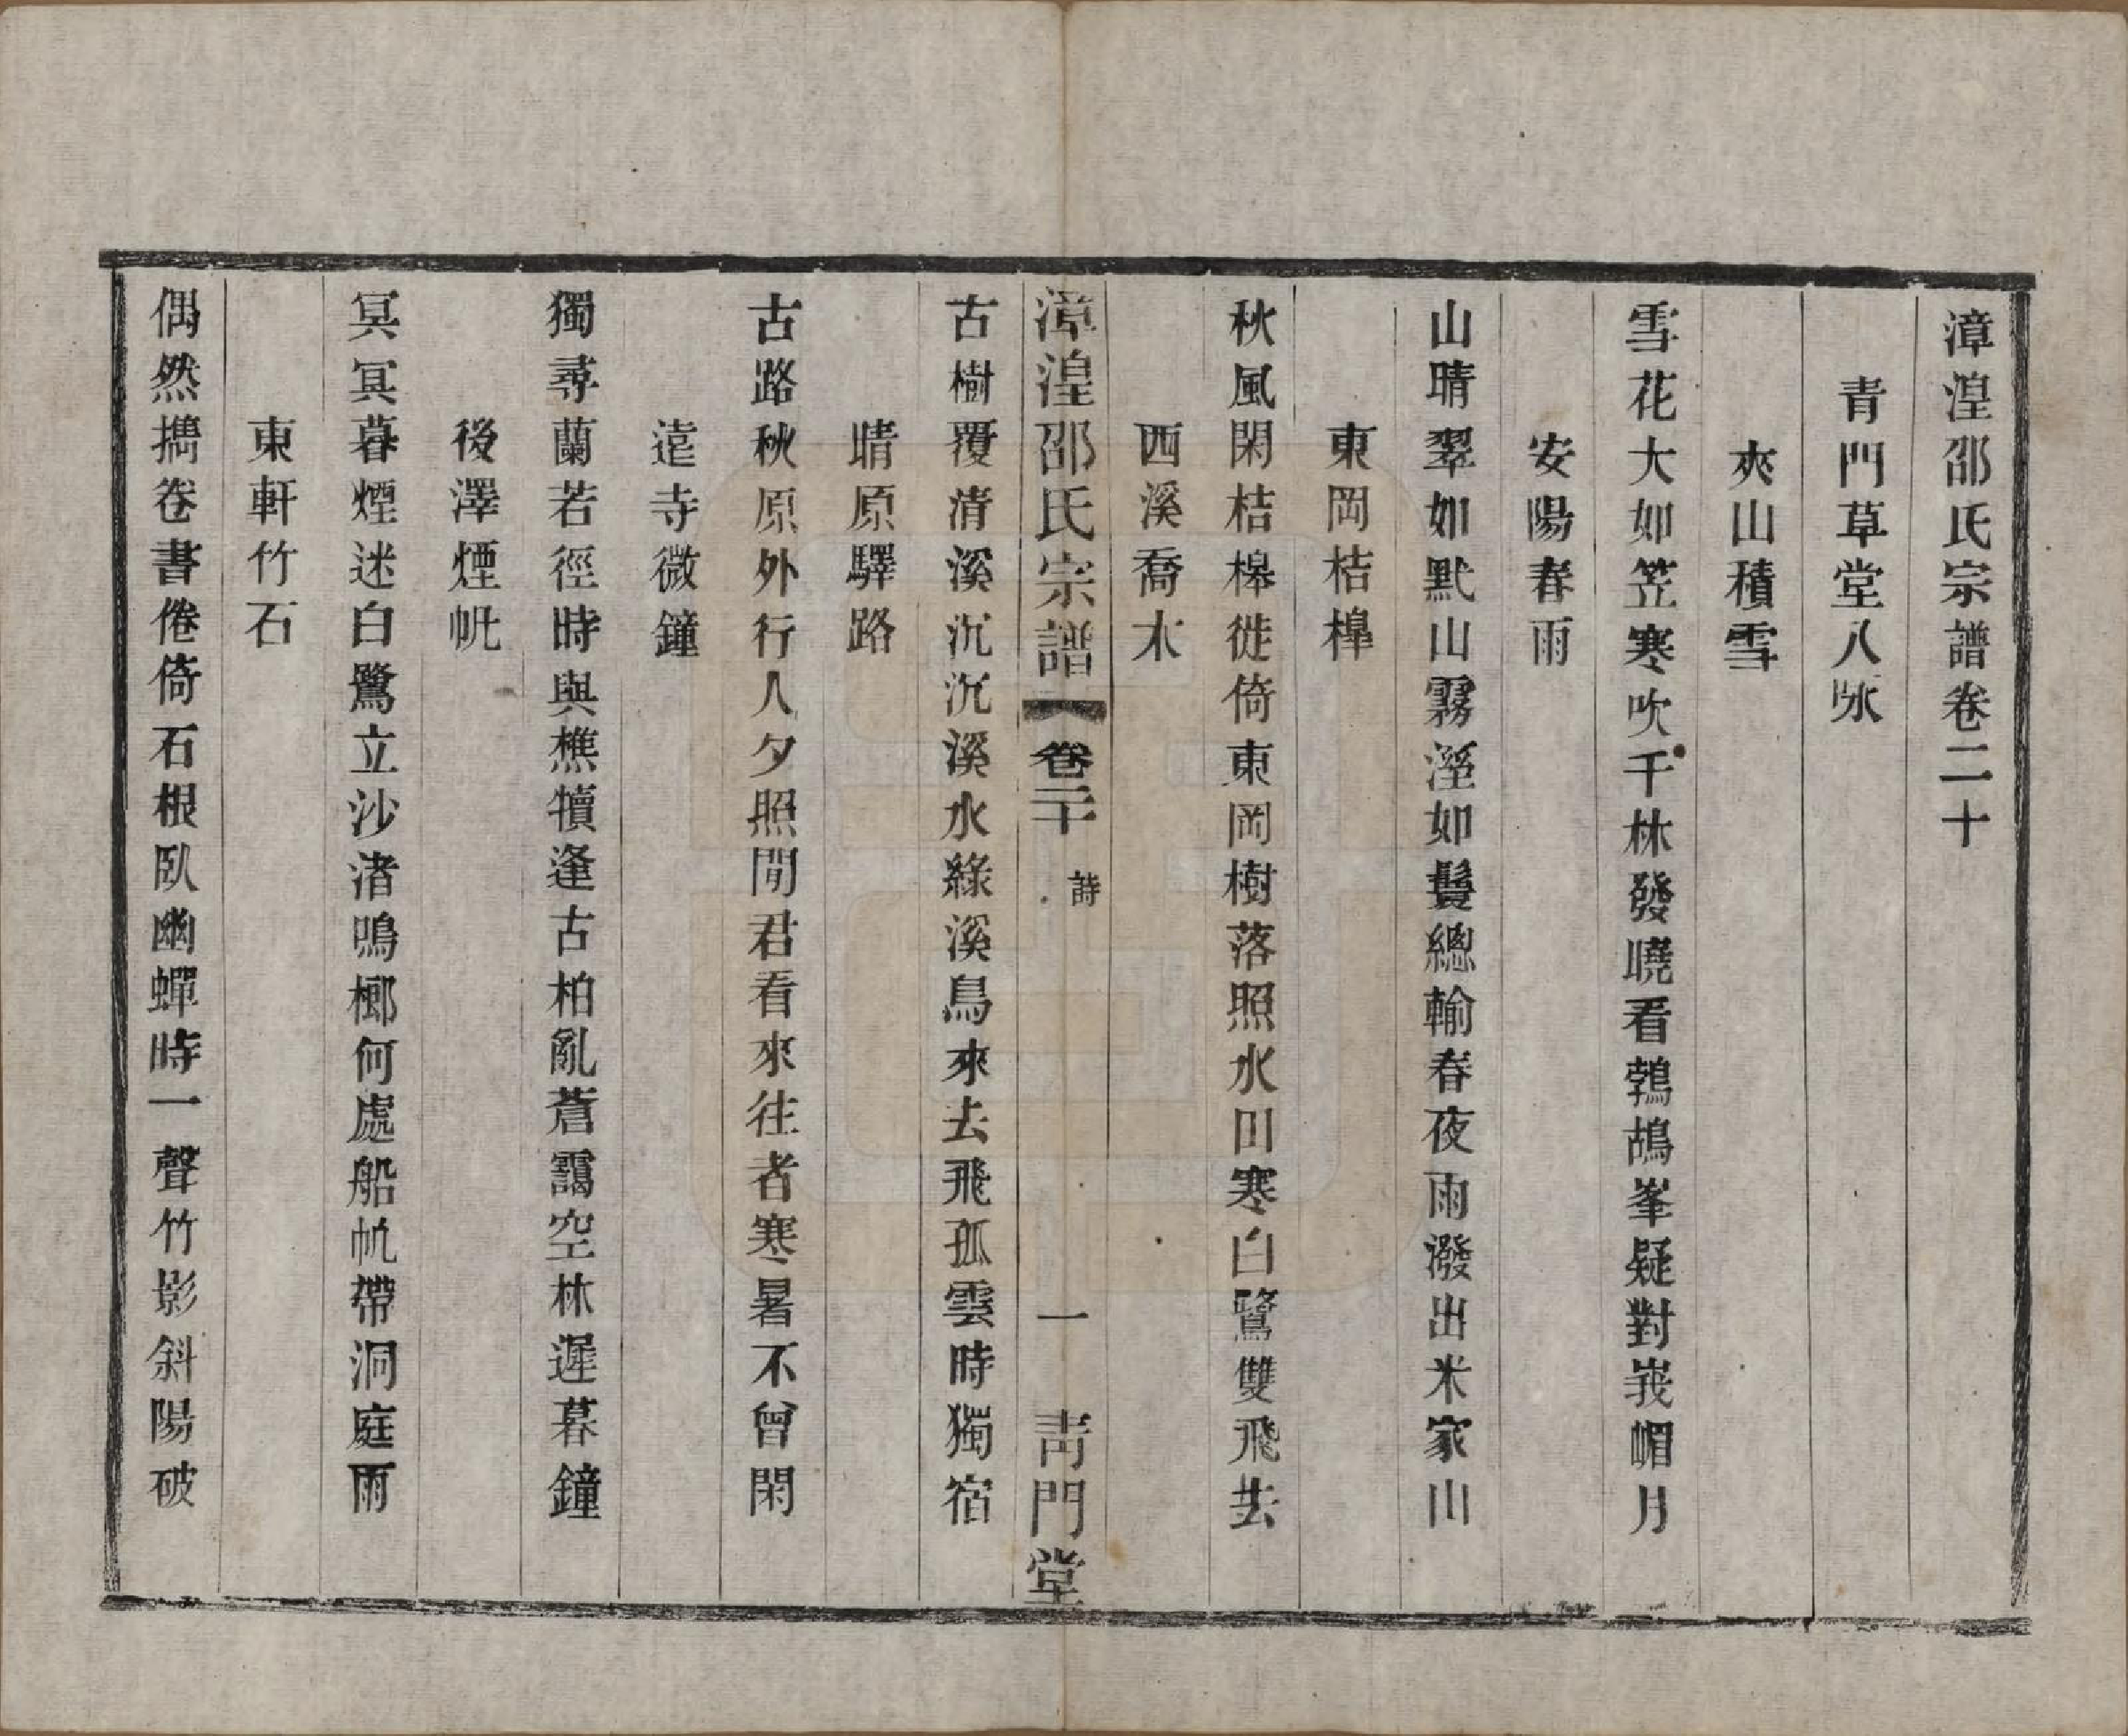 漳湟邵氏宗譜卷二十
青門草堂八咏
夾山積雪
雪花大如笠寒吹千林發曉看鵓鴣峯疑對峩嵋月
安陽春雨
山晴翠如㸃山霧溼如鬟總輸春夜雨潑出米家山
東岡桔槔
秋風閑桔槔徙倚東岡樹落照水田寒白鷺雙飛去
西溪喬木
漳湟邵氏宗譜 卷二十 詩 一 青門堂
古樹覆清溪沉沉溪水綠溪鳥來去飛孤雲時獨宿
晴原驛路
古路秋原外行人夕照間君看來往者寒暑不曾閑
遠寺微鐘
獨尋蘭若徑時與樵犢逢古柏亂蒼靄空林遲暮鐘
後澤煙帆
冥冥暮煙迷白鷺立沙渚鳴榔何處船帆帶洞庭雨
東軒竹石
偶然擕卷書倦倚石根臥幽蟬時一聲竹影斜陽破